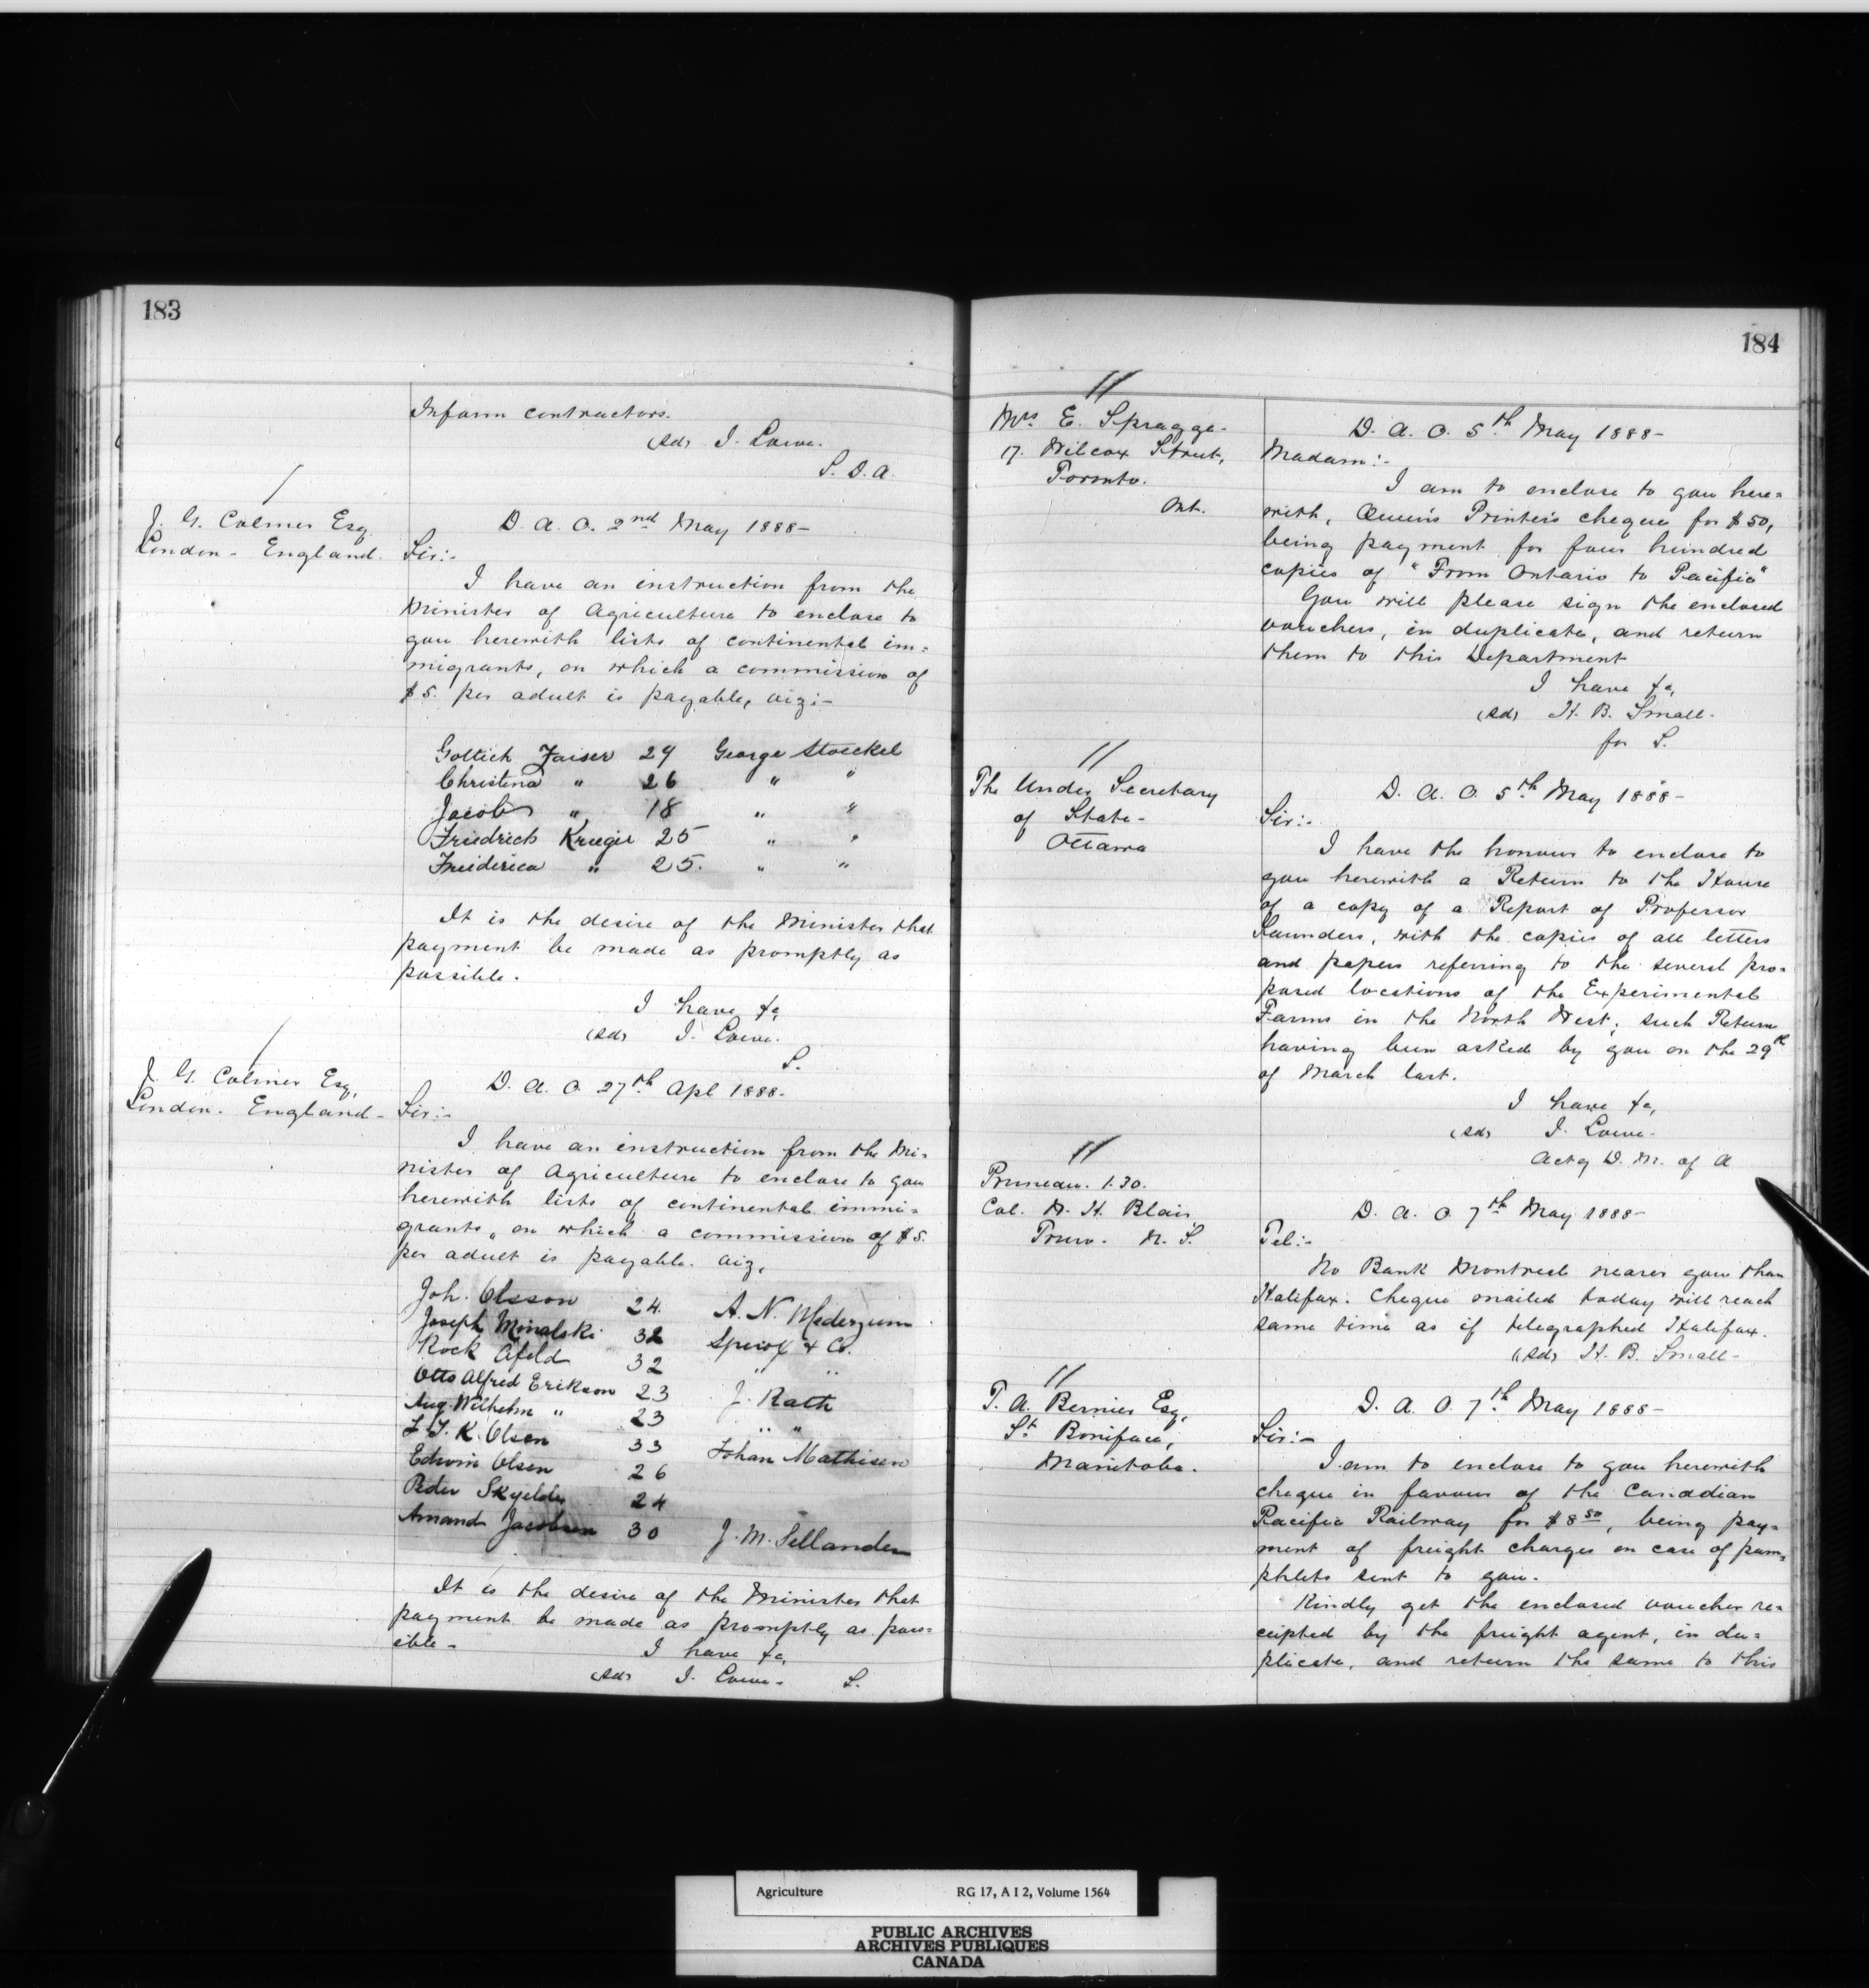 183
Inform contractors.
(Sd) J. Lowe.
S. D. A.
J. G. Colmer Esq.
London - England.
D. A. O. 2nd May 1888 -
Sir:-
I have an instruction from the
Minister of Agriculture to enclose to
you herewith lists of continental im=
migrants, on which a commission of
$5. per adult is payable, viz:-
Gottich Faiser 29 George Stoeckel
Christena " 26 " "
Jacob " 18 " "
Friedrich Krueger 25 " "
Friederica " 25. " "
It is the desire of the Minister that
payment be made as promptly as
possible.
I have &c,
(Sd) J. Lowe.
S.
J. G. Colmer Esq,
London - England -
D. A. O. 27th Apl 1888.
Sir:-
I have an instruction from the Mi-
nister of Agriculture to enclose to you
herewith lists of continental immi=
grants, on which a commission of $5.
per adult is payable. viz,
Joh. Olsson 24. A. N.
Joseph Minalski 32 & Co.
Rock Afeld 32 " "
Otto Alfred Erikson 23 J. Rath
Aug. Wilhelm " 23 " "
K. Olsen 33 Johan Mathisen
Edwin Olsen 26
Peder 24
Amand Jacobsen 30 J. M. Sellanden
It is the desire of the Minister that
payment be made as promptly as poss=
ible -
I have &c,
(Sd) J. Lowe - S.
184
Mrs. E. Spragge -
17. Wilcox Street,
Toronto.
Ont.
D. A. O. 5th May 1888 -
Madam:-
I am to enclose to you here=
with, Queen's Printer's cheque for $50,
being payment for four hundred
copies of "From Ontario to Pacific"
You will please sign the enclosed
vouchers, in duplicate, and return
them to this Department
I have &c,
(Sd) H. B. Small -
for S.
The Under Secretary
of State -
Ottawa
D. A. O. 5th May 1888 -
Sir:-
I have the honour to enclose to
you herewith a Return to the House
of a copy of a Report of Professor
Saunders, with the copies of all letters
and papers referring to the several pro=
posed locations of the Experimental
Farms in the North West, such Return
having been asked by you on the 29th
of March last.
I have &c,
(Sd) J. Lowe -
Actg D. M. of A
Pruneau. 1.30.
Col. W. H. Blair
Truro. N. S.
D. A. O. 7th May 1888 -
Tel:-
No Bank Montreal nearer you than
Halifax. Cheque mailed today will reach
same time as if telegraphed Halifax.
(Sd) H. B. Small -
T. A. Bernier Esq,
St Boniface,
Manitoba.
D. A. O. 7th May 1888 -
Sir:-
I am to enclose to you herewith
cheque in favour of the Canadian
Pacific Railway for $8 50, being pay=
ment of freight charges on case of pam=
phlets sent to you.
Kindly get the enclosed voucher re=
ceipted by the freight agent, in du=
plicate, and return the same to this
Agriculture RG 17, A I 2, Volume 1564
PUBLIC ARCHIVES
ARCHIVES PUBLIQUES
CANADA